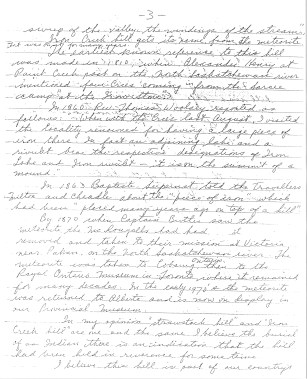 - 3 -
sweep of the valley, the windings of the stream,
Iron Creek hill gets its name from the meteorite
The earliest known reference to this hill
was made in 1810, when Alexander Henry at
Paint Creek post on the North Saskatchewan river
mentioned four Crees coming from the
camp at the Iron
In 1860 Rev. Thomas Woolsey reported as
follows: "When with the Cree last August, I visited
the locality renowned for having a large piece of
iron there. In fact an adjoining lake and a
rivulet bear the respective designations of Iron
Lake and Iron rivulet - it is on the summit of a
mound."
In 1863 Baptiste Supernat told the Travellers
Milton and Cheadle about the "piece of iron" which
had been placed many years ago on top of a hill"
By 1870 when Captain Butler saw the
meteorite the McDougalls had had it
removed and taken to their mission at Victoria,
near Pakan, on the North Saskatchewan river. The
meteorite was taken to then to the
Royal Ontario Museum in Toronto where it remained
for many decades. In the early 1970's the meteorite
was returned to Alberta and is now on display in
our Provincial Museum.
In my opinion "Strawstack hill" and "Iron
Creek hill" are one and the same. I believe the burial
of an Indian there is an indication that the hill
had been held in reverence for some time.
I believe this hill is part of our country's